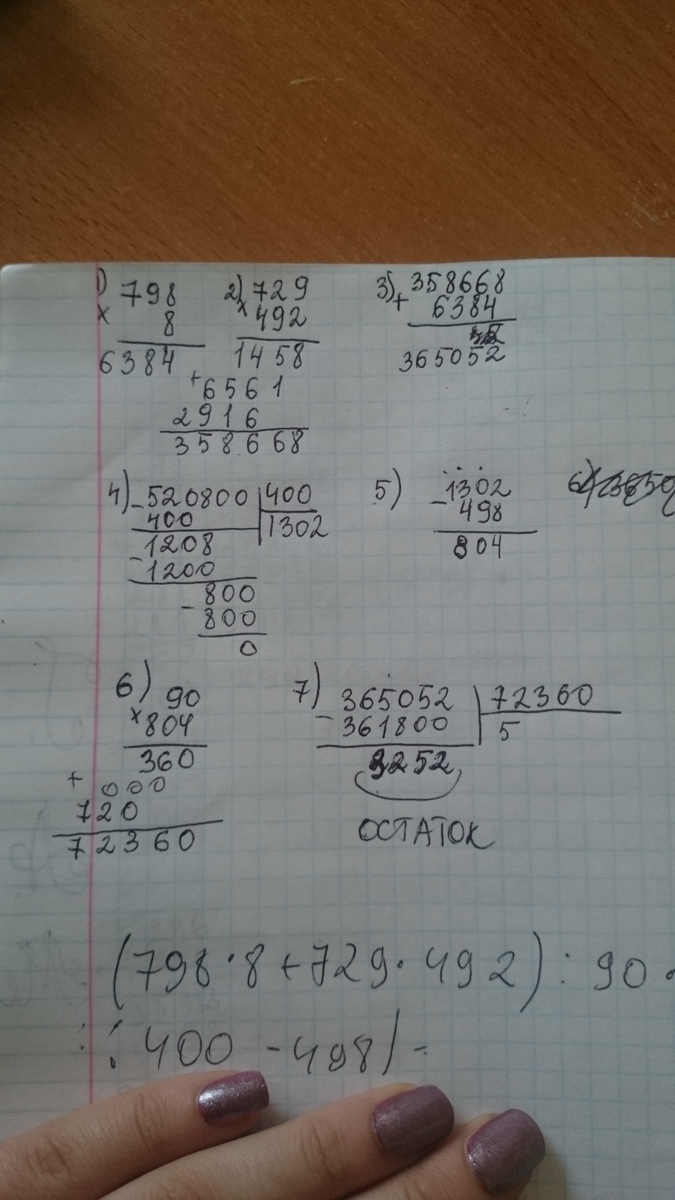 1) 798
× 8
6384
2) 729
× 492
1458
+ 6561
2916
358668
3) 358668
+ 6384
365052
4) - 520800 | 400
400 | 1302
- 1208
1200
- 800
800
0
5) - 1302
498
804
6) 90
× 804
360
+ 000
720
72360
7) - 365052 | 72360
361800 | 5
3252
ОСТАТОК
(798 · 8 + 729 · 492) : 90 ·
: 400 - 498) =